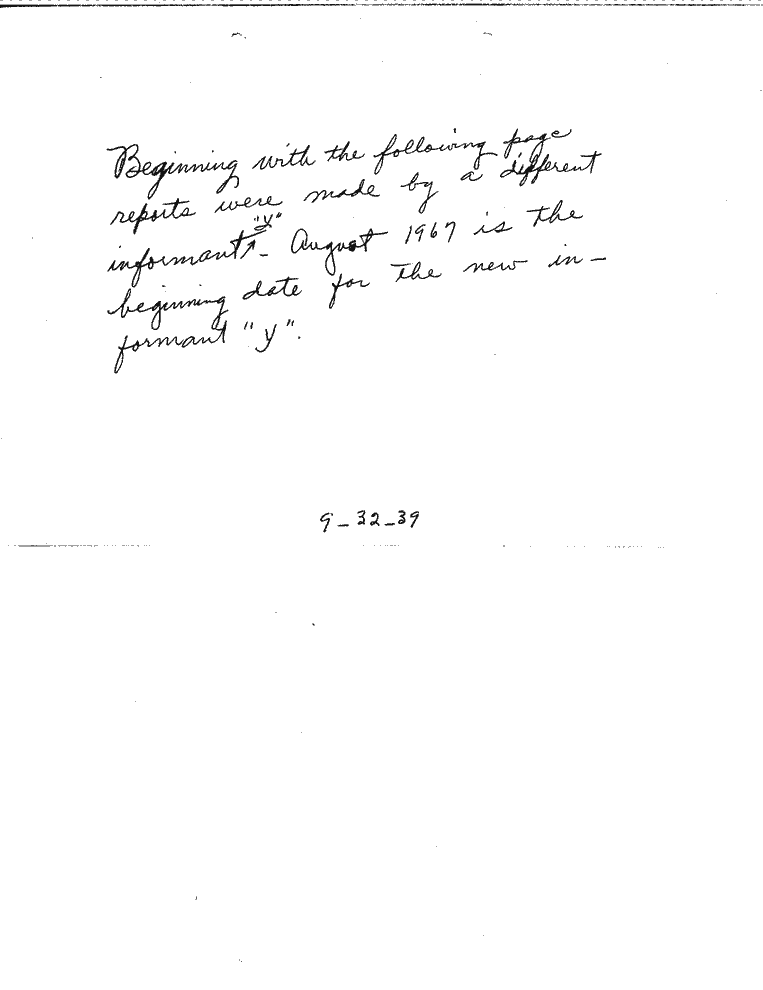 Beginning with the following page
reports were made by a different
informant "y" - August 1967 is the
beginning date for the new in-
formant "y".
9-32-39